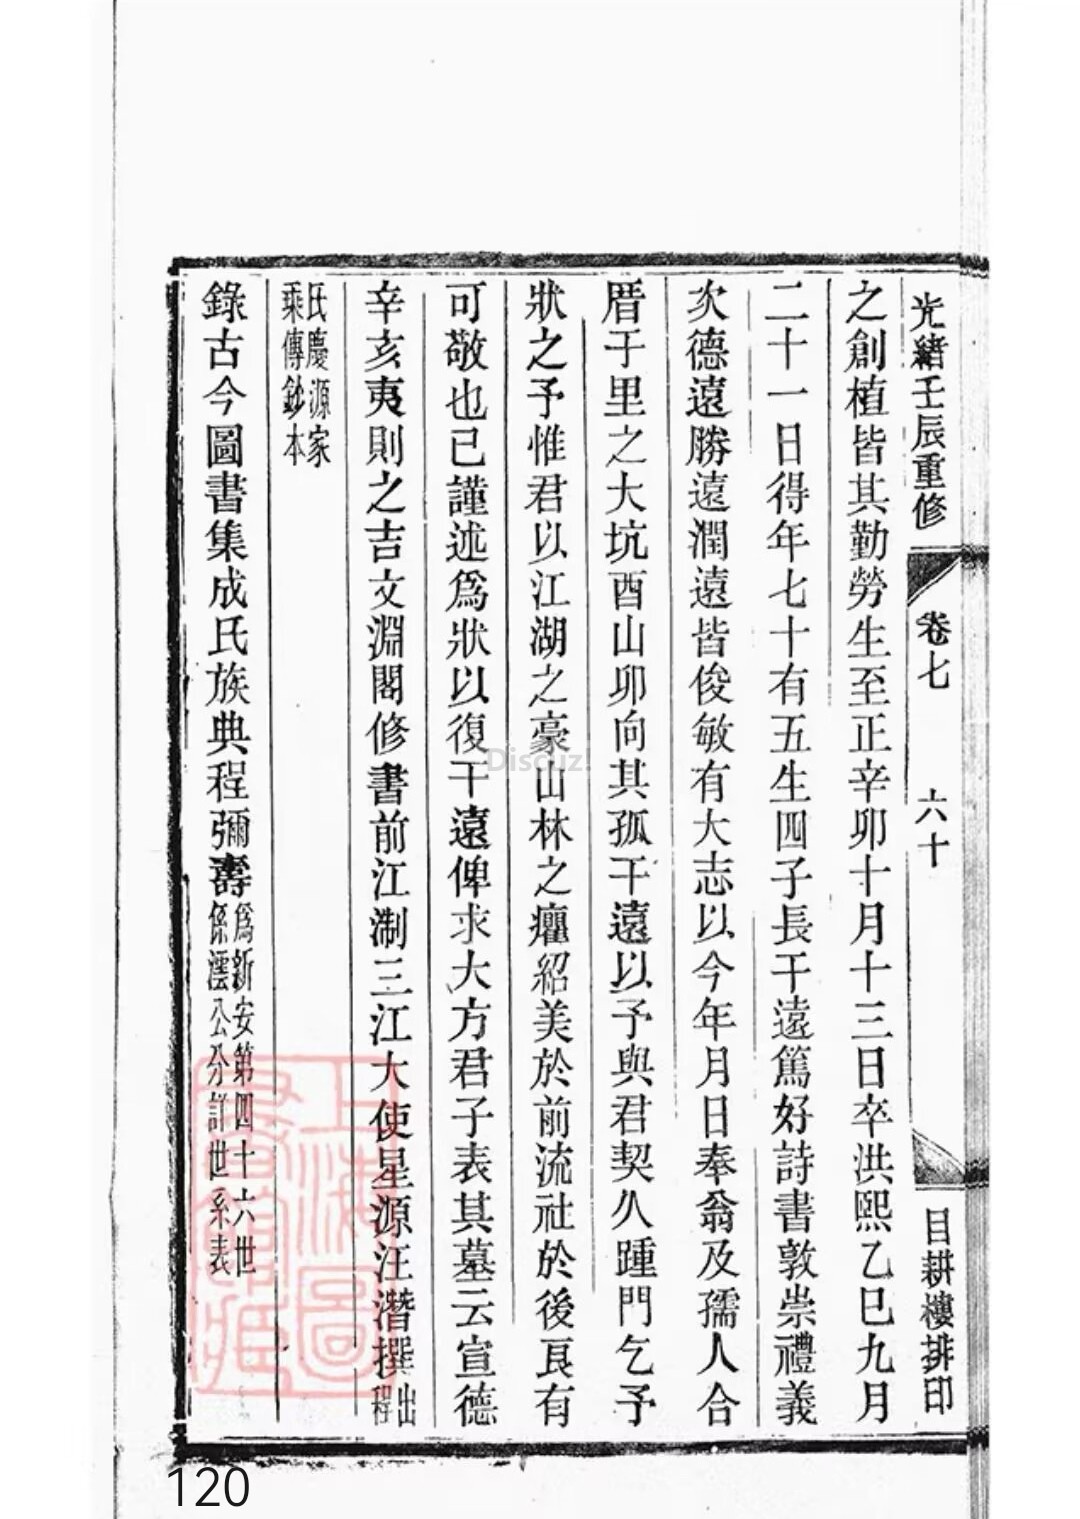 光緒壬辰重修
卷七
六十
目耕樓排印
之創植皆其勤勞生至正辛卯十月十三日卒洪熙乙巳九月
二十一日得年七十有五生四子長干遠篤好詩書敦崇禮義
次德遠勝遠潤遠皆俊敏有大志以今年月日奉翁及孺人合
厝于里之大坑酉山卯向其孤干遠以予與君契久踵門乞予
狀之予惟君以江湖之豪山林之癯紹美於前流祉於後良有
可敬也已謹述爲狀以復干遠俾求大方君子表其墓云宣德
辛亥夷則之吉文淵閣修書前江淛三江大使星源汪潛撰出程
氏慶源家
乘傳鈔本
錄古今圖書集成氏族典程彌壽爲新安第四十六世
係澐公分詳世系表
上海圖書館藏
Discuz!
120